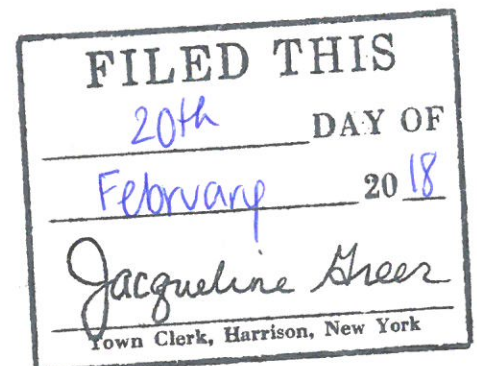 FILED THIS
20th DAY OF
February 20 18
Jacqueline Greer
Town Clerk, Harrison, New York